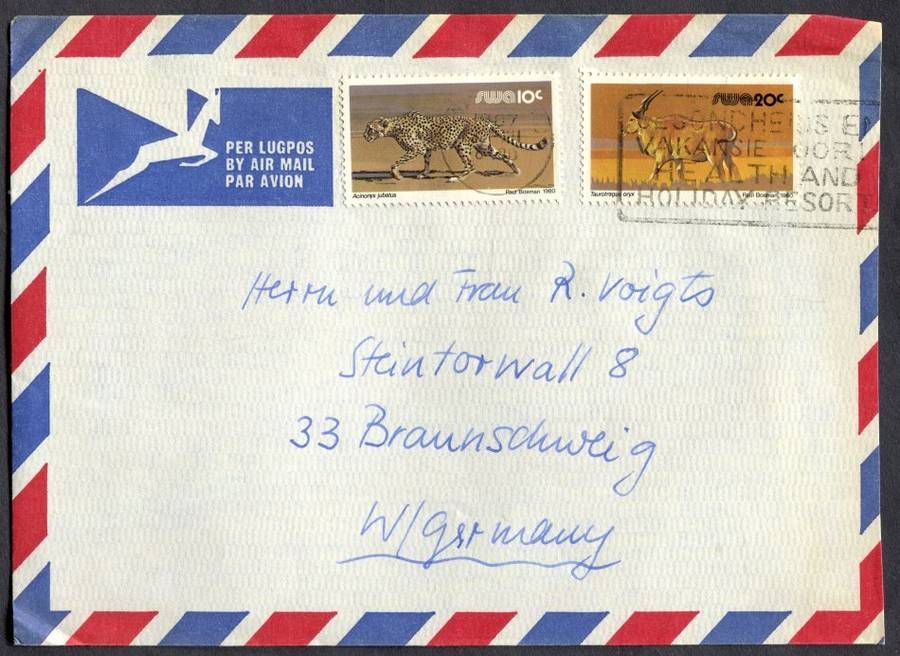 PER LUGPOS
BY AIR MAIL
PAR AVION
swa 10c
Acinonyx jubatus
Paul Bosman 1980
swa 20c
Taurotragus oryx
Paul Bosman 1980
VAKANSIE OORD
HEALTH AND
HOLIDAY RESORT
Herrn und Frau R. Voigts
Steintorwall 8
33 Braunschweig
W/Germany